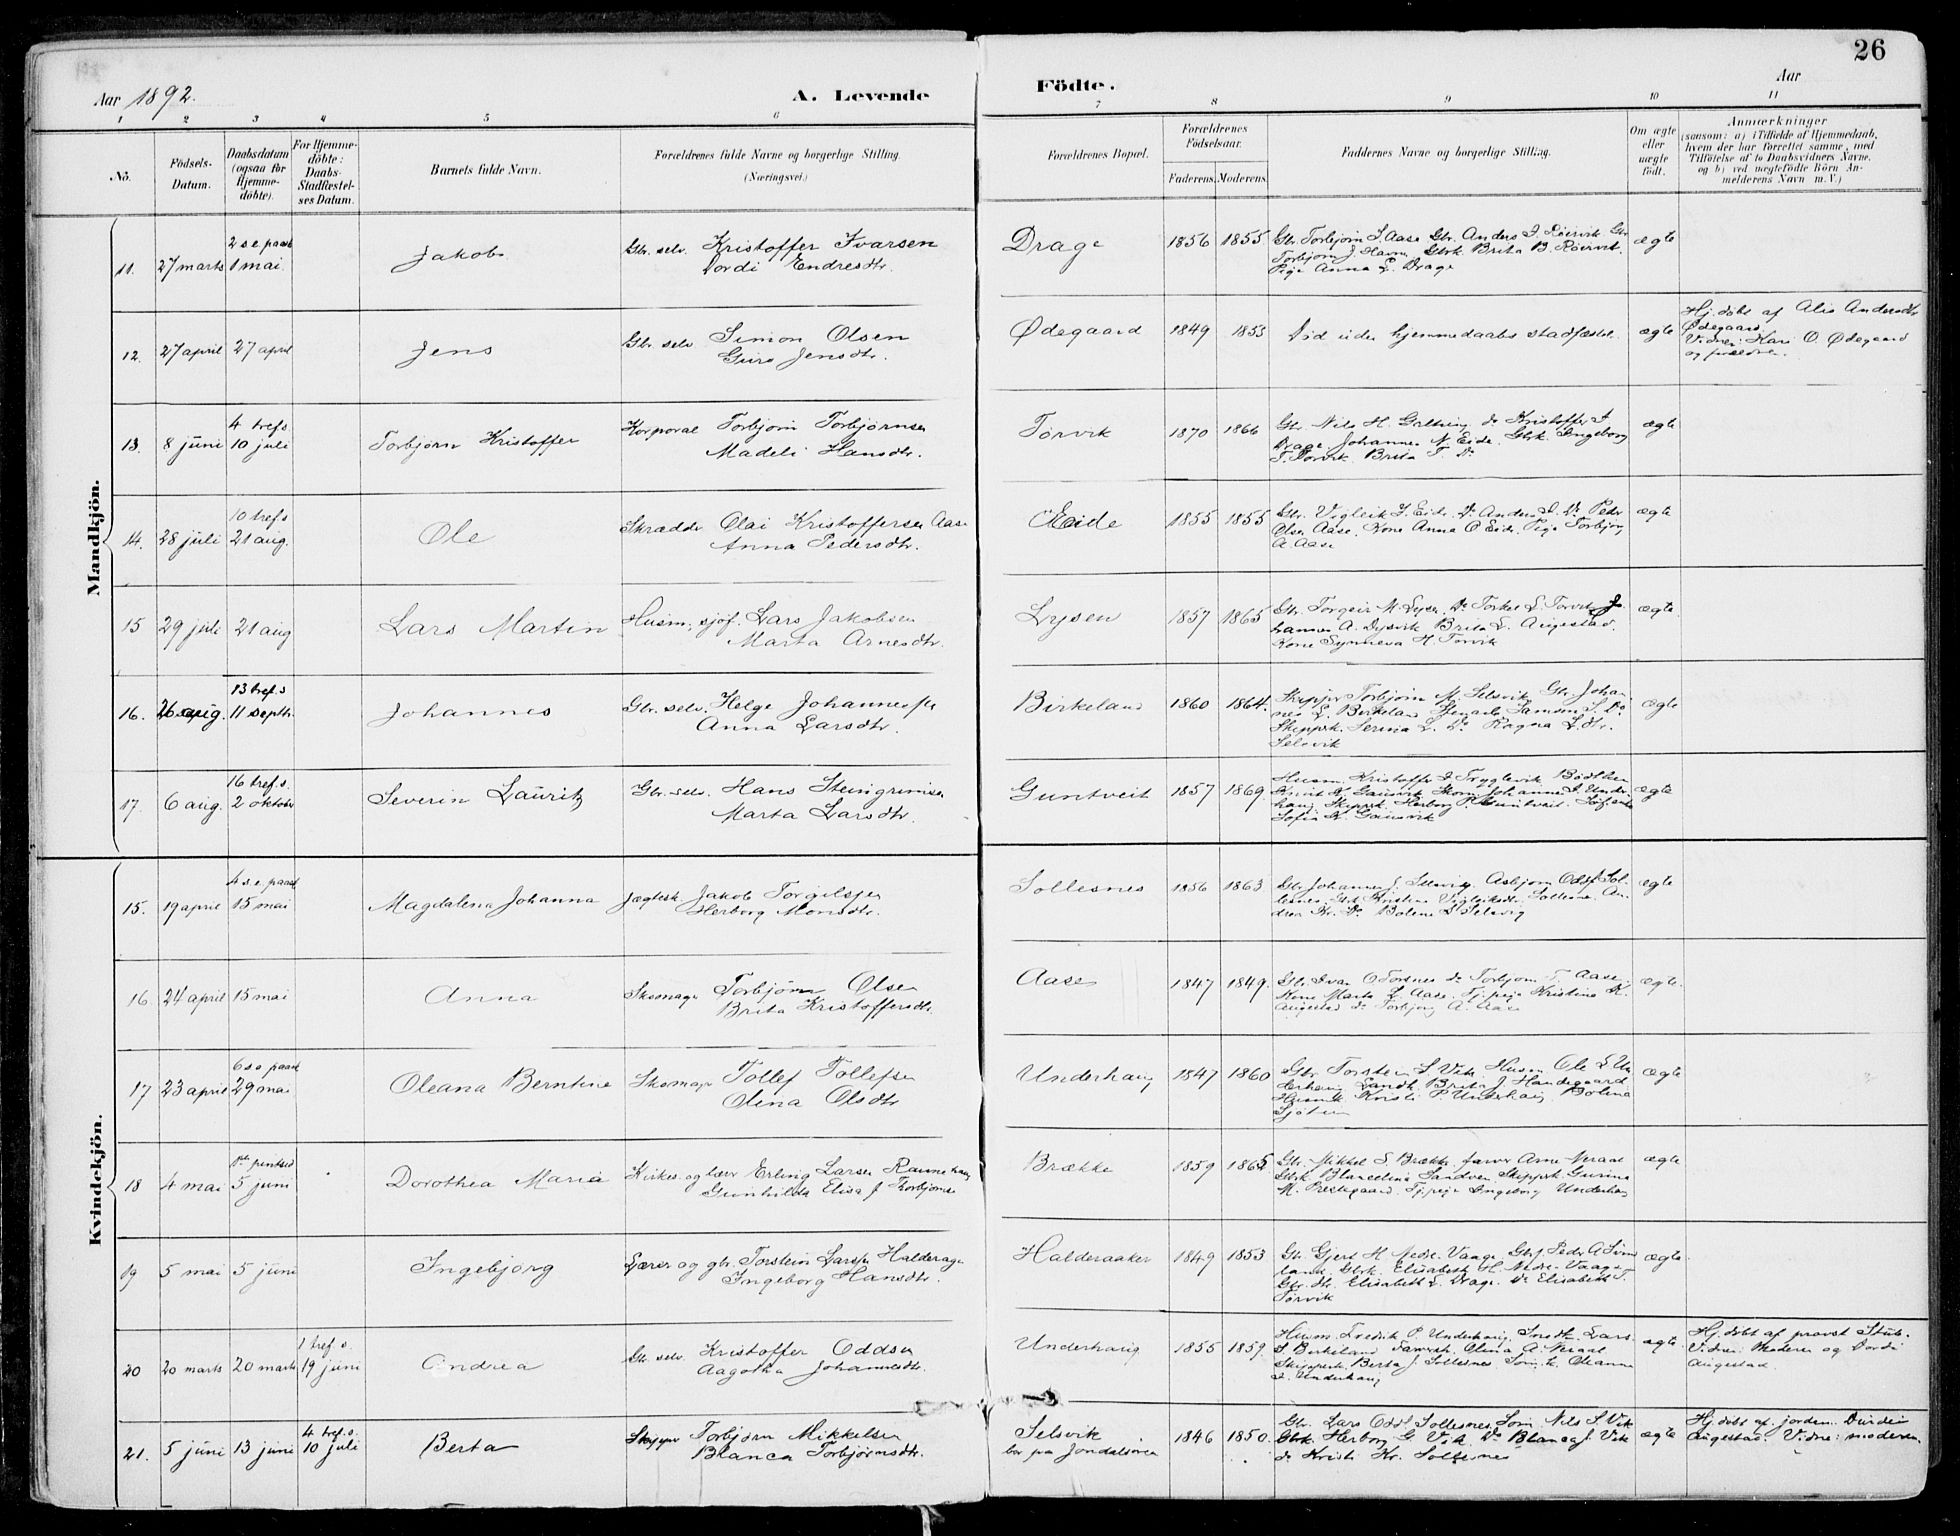 26
Aar 1892.
A. Levende
Födte.
Aar
1 2 3 4 5 6 7 8 9 10 11
No.
Födsels-
Datum.
Daabsdatum
(ogsaa for
Hjemme-
döbte).
For Hjemme-
döbte:
Daabs-
Stadfæstel-
ses Datum.
Barnets fulde Navn.
Forældrenes fulde Navne og borgerlige Stilling.
(Næringsvei.)
Forældrenes Bopæl.
Forældrenes
Födselsaar.
Faderens. Moderens.
Faddernes Navne og borgerlige Stilling.
Om ægte
eller
uægte
födt.
Anmærkninger
(saasom: a) i Tilfælde af Hjemmedaab,
hvem der har forrettet samme, med
Tilföielse af to Daabsvidners Navne,
og b) ved uægtefödte Börn An-
melderens Navn m. V.)
Mandkjön.
11. 27 marts
2 s.e. paask
1 mai.
Jakob
Gbr. selv. Kristoffer Ivarsen
Dordi Endresdtr.
Drage
1856 1855
Gbr. Torbjørn I. Aase Gbr. Anders I. Röervik Gbr.
Torbjørn J. Havn, Gbrk Brita B. Röervik
Pige Anna L. Drage
ægte
12. 27 april 27 april
Jens
Gbr. selv. Simon Olsen
Guro Jensdtr.
Ødegaard
1849 1853
Död uden hjemmedaabs stadfæstel.
ægte
Hj. döbt af Alis Andersdtr
Ødegaard.
Vidner: Kari O. Ødegaard
og forældrene.
13. 8 juni
4 tref s.
10 juli
Torbjørn Kristoffer
Korporal Torbjørn Torbjørnsen
Madeli Hansdtr.
Torvik
1870 1866
Gbr. Nils H. Do Kristoffer I.
Drage, Johannes N. Eide. Gbrk. Ingeborg
T. Torvik. Brita T. Do
ægte
14. 28 juli
10 tref s
21 aug.
Ole
Skrædder Olai Kristoffersen Aase
Anna Pedersdtr.
Eide
1855 1855
Gbr. Vigleik I. Eide. Do Anders I. Do Peder
Olsen Aase. Kone Anna O Eide. Pige Torbjør
A. Aase
ægte
15 29 juli 21 aug
Lars Martin
Husm. sjöf. Lars Jakobsen
Marta Arnesdtr.
Lysen
1857 1865
Gbr. Torgeir M. Lysen Do Torkel L. Torvik Jo-
hannes A. Dysvik Brita L. Augestad.
Kone Synneva H. Torvik
ægte.
16. 26 aug.
13 tref. s
11 septbr.
Johannes
Gbr. selv. Helge Johannesen
Anna Larsdtr.
Birkeland
1860 1864.
Skipper Torbjørn M. Selsvik Gbr. Johan-
nes L. Birkeland Samson S. Do
Skippsk. Serina L. Do Ragna L.dtr.
Selsvik
ægte
17. 6 aug.
16 tref. s.
2 oktober
Severin Lauritz
Gbr. selv. Hans Steingrimsen
Marta Larsdtr.
Guntveit
1857 1869.
Husm. Kristoffer I. Tryglevik
Knut K. Gausvik Skom. Johannes I. Under-
haug Skippsk. Herborg P. Guntveit.
Sofia K. Gausvik
ægte
Kvindekjön.
15. 19 april
4 s.e. paask
15 mai
Magdalena Johanna
Jægtesk. Jakob Torgilsen
Herborg Monsdtr.
Sollesnes
1856 1863
Gbr. Johannes J. Selsvig. Asbjørn Odds. Sol-
lesnes. Gbrk Kristine Vigleiksdtr. Sollesnes. An-
drea Kr. Do Bolene L Selsvig
ægte
16. 24 april 15 mai
Anna
Skomager Torbjørn Olsen
Brita Kristoffersdtr.
Aase
1847 1849.
Gbr. Ivar O Torsnes Do Torbjørn T. Aase,
Kone Marta L. Aase. Tj. pige Kristine K.
Augestad Do Torbjørg A. Aase
ægte.
17 23 april
6 s.e. paask
29 mai
Oleana Berntine
Skomager Tollef Tollefsen
Olina Olsdtr.
Underhaug
1847 1860
Gbr. Torstein S. Vik, Husm Ole L Un-
derhaug Landh. Brita J. Handegaard.
Husmk. Kristi P. Underhaug Bolena
ægte
18 4 mai
1ste pintsed
5 juni
Dorothea Maria
Kirkes. og lærer Erling Larsen Raunehaug
Gunhilda Elisa J. Torbjørnse
Brække
1859 1865
Gbr. Mikkel S. Brække, farver Arne Neraal
Gbrk Blancelina Sandven, Skippsk. Gurina
M. Prestegaard, Tj. pige Ingeborg Underhaug
ægte
19 5 mai 5 juni
Ingebjørg
Lærer og gbr. Torstein Larsen Halderager
Ingeborg Hansdtr.
Halderaaker
1849 1853
Gbr. Gjert H Nedre-Vaage. Gbrf Peder A
land. Gbrk. Elisabeth H. Nedre-Vaage
Gbr. dtr. Elisabeth L. Drage. Do Elisabeth T.
Torvik
ægte.
20 20 marts 20 marts
1 tref. s.
19 juni
Andrea
Gbr. selv Kristoffer Oddsen
Aagotha Johannesdtr.
Underhaug
1855 1859.
Husm. Fredrik P. Underhaug, Lars
S. Birkeland Farversk. Olina A. Neraal
Skippersk. Berta J. Sollesnes, Oleanna
I. Underhaug
ægte.
Hj. döbt af provst Stub.
Vidner: Moderen og Dordi
Augestad.
21. 5 juni 13 juni
4 tref. s.
10 juli
Berta
Skipper Torbjørn Mikkelsen
Blanca Torbjørnsdtr.
Selsvik
bor paa Jondalsören
1846 1850.
Gbr. Lars Odds. Sollesnes, Nils S. Vik
Gbrk. Herborg G. Vik. Do Blanca J. Vik
do Kristi Kr. Sollesnes
ægte
Hj. döbt af jordem. Durdei
Augestad. Vidne: moderen.